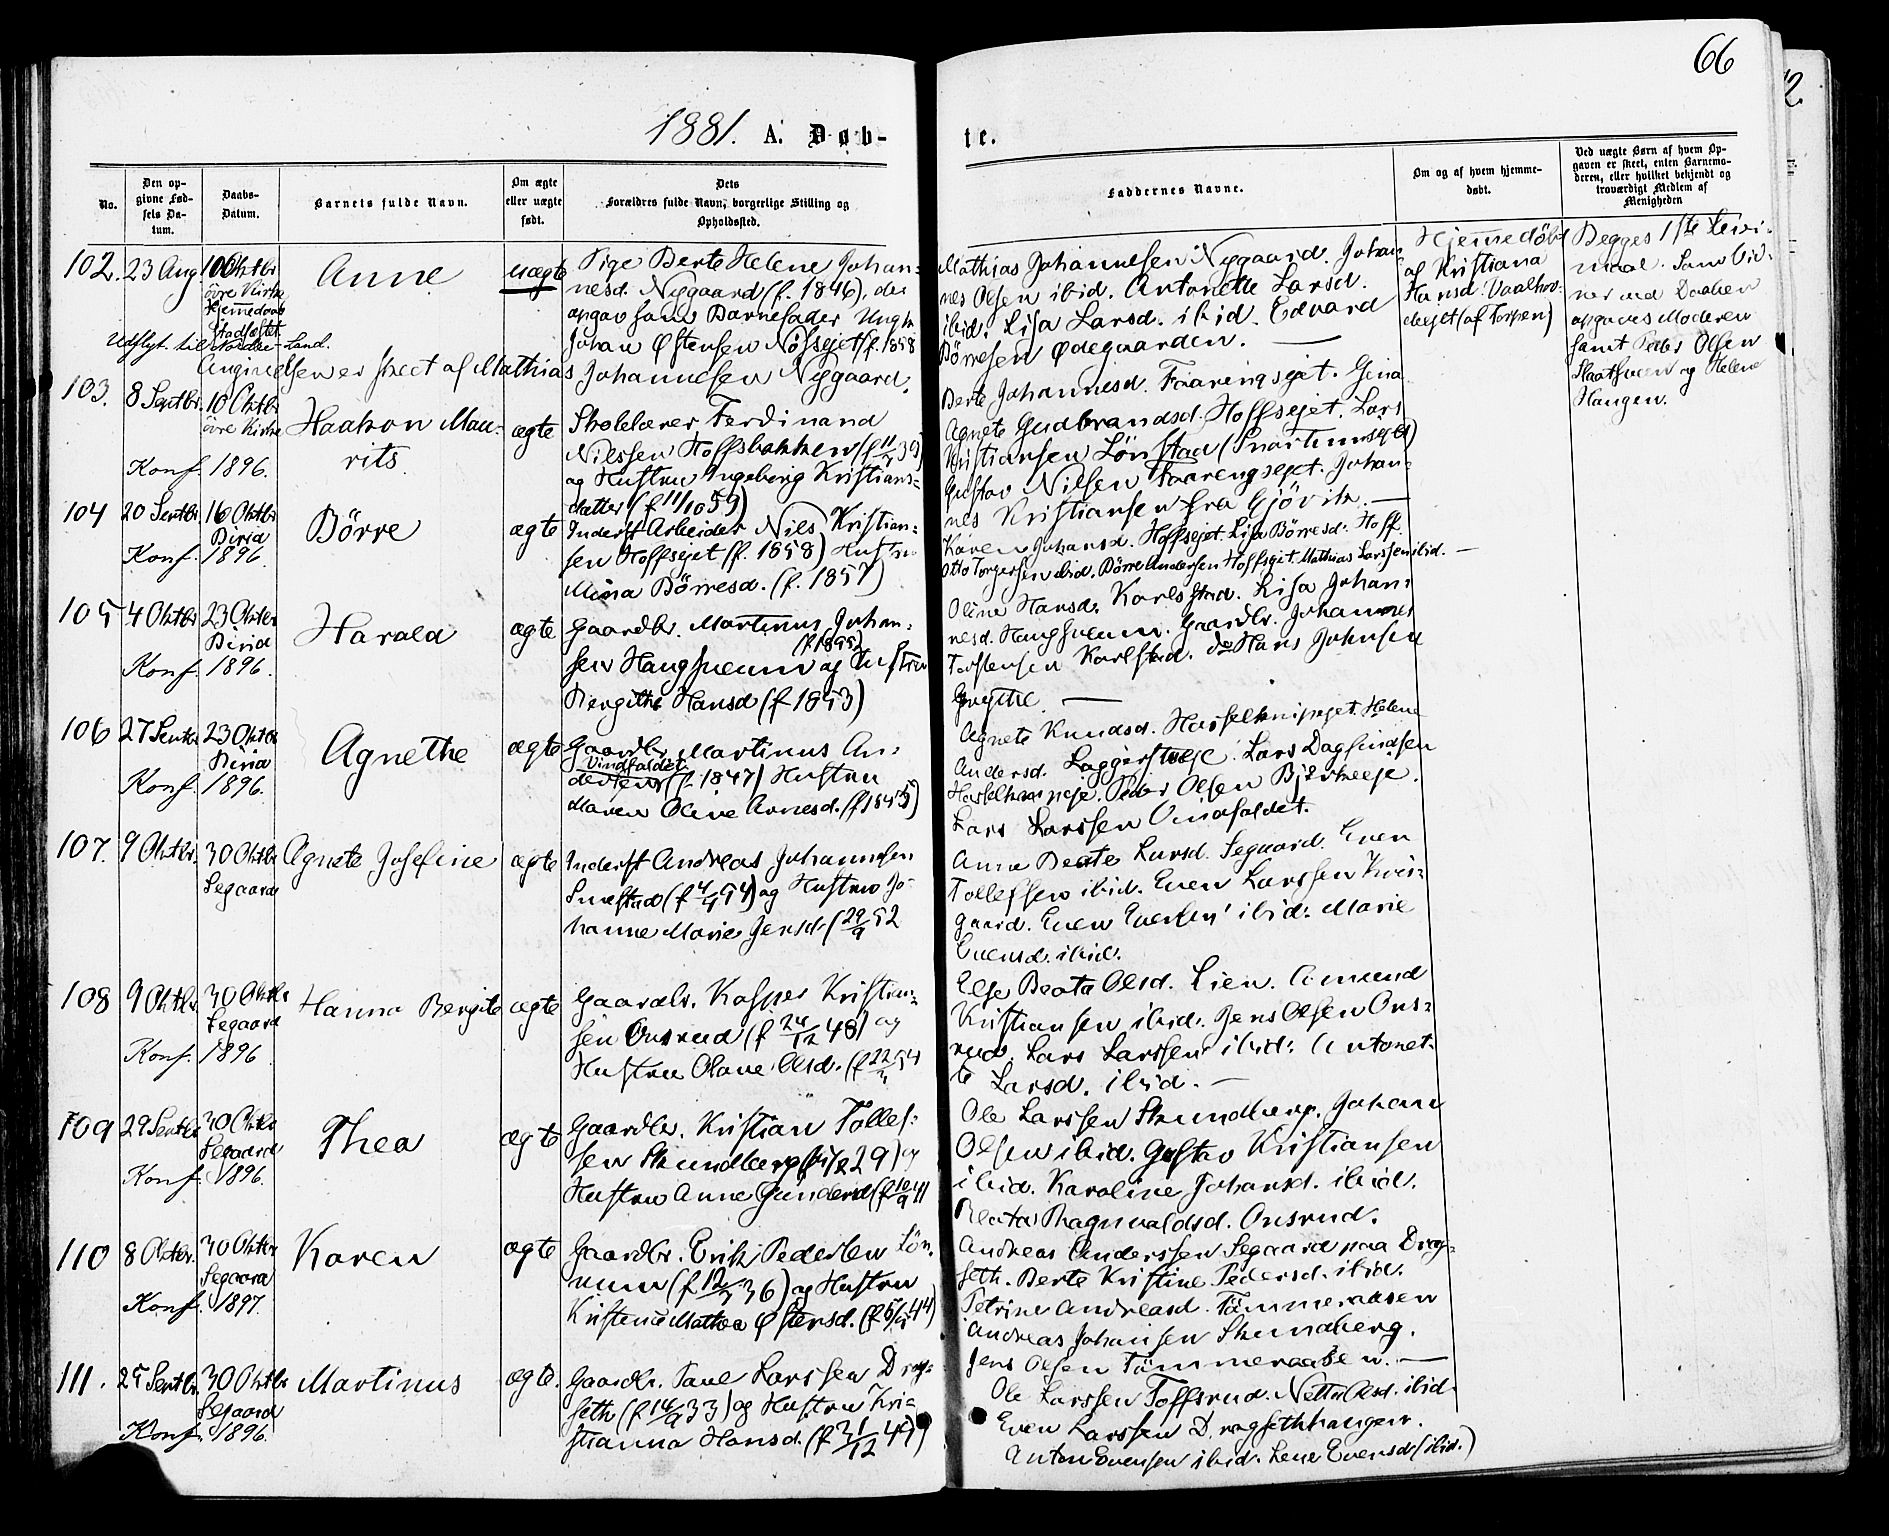 66
1881. A. Døb-
te.
No.
Den op-
givne Fød-
sels Da-
tum.
Daabs-
Datum.
Barnets fulde Navn.
Om ægte
eller uægte
født.
Dets
Forældres fulde Navn, borgerlige Stilling og
Opholdssted.
Faddernes Navne.
Om og af hvem hjemme-
døbt.
Ved uægte Børn af hvem Op-
gaven er skeet, enten Barnemo-
deren, eller hvilket bekjendt og
troværdigt Medlem af
Menigheden
102. 23 Aug. 10 Oktbr
øvre Kirke
Hjemmedaab
Stadfæstet
Udflyt. til Nordre-Land.
Anne
uægte
Pige Berte Helene Johan-
nesd. Nygaard (f. 1846), der
opgav som Barnefader Ungk.
Johan Østensen Nøssejet (f. 1858
Angivelsen er skeet af Mathias Johannesen Nygaard.
Mathias Johannesen Nygaard. Johan-
nes Olsen ibid. Antonette Larsd.
ibid. Lisa Larsd. ibid. Edvard
Børresen Ødegaarden. —
Hjemmedøbt
af Kristiana
Hansd. Vaalhov-
dejet (af Torpen)
Begges 1ste Leier-
maal. Som Vid-
ner ved Daaben
opgaves Moderen
samt Peder Olsen
Slaatsveen og Helene
Haugen.
103. 8 Septbr. 10 Oktbr
øvre Kirke
Konf. 1896.
Haakon Mau-
rits.
ægte
Skolelærer Ferdinand
Nilssen Hoffsbakken
og Hustru Ingeborg Kristians-
datter (f. 11/10 59)
Berte Johannesd. Faarengsejet. Gina
Agnete Gudbrandsd. Hoffsejet. Lars
Kristiansen Lønstad (Snartumsejet)
Gustav Nilsen Faarengsejet. Johan-
nes Kristiansen fra Gjövik. —
104 20 Septbr. 16 Oktbr
Birid
Konf. 1896.
Börre
ægte
Inderst Arbeider Nils Kristian-
sen Hoffsejet (f. 1858) Hustru
Mina Börresd. (f. 1857)
Karen Johansd. Hoffsejet. Lisa Börresd. Hoff.
Otto Torgersen ibid. Børre Andersen Hoffsejet. Mathias Larssen ibid. —
105 4 Oktbr 23 Oktbr
Birid
Konf. 1896.
Harald
ægte
Gaardbr. Martinus Johan-
sen Haugsveen og Hustru
Bergithe Hansd (f. 1853)
Oline Hansd. Karlstad. Lisa Johan-
nesd. Haugsveen. Gaardbr. Johannes
Torstensen Karlstad. do Hans Johnsen
106 27 Septbr 23 Oktbr
Birid
Konf. 1896.
Agnethe
ægte
Gaardbr. Martinus An-
Vindfaldet
dersen (f. 1847) Hustru
Maren Oline Arnesd.
Agnete Knudsd. Hasselknipejet. Helene
Andersd. Laggerstueje. Lars Dagfindsen
Hasselknipeje. Peder Olsen Bjerkeeje.
Lars Larssen Vindfaldet.
107. 9 Oktbr. 30 Oktbr
Segaard
Agnete Josefine
ægte
Inderst Andreas Johannesen
og Hustru Jo-
hanne Marie Jensd. (29/9 52
Anne Beate Larsd. Segaard. Even
Tollefsen ibid. Even Larssen Kvis-
gaard. Even Evensen ibid. Marie
Evensd. ibid.
108 9 Oktbr. 30 Oktbr
Segaard
Konf. 1896
Hanna Bergite
ægte
Gaardbr. Kasper Kristian-
sen Onsrud (f 24/12 48) og
Hustru Olave Olsd.
Else Beata Olsd. Lien. Amund
Kristiansen ibid. Jens Olsen Ons-
rud. Lars Larssen ibid. Antonet-
te Larsd. ibid. —
109 29 Septbr 30 Oktbr
Segaard
Konf. 1896.
Thea
ægte
Gaardbr. Kristian Tollef-
sen Skundberg og
Hustru Anne Gundersd (f 10/9 41
Ole Larssen Skundberg. Johan
Olsen ibid. Gustav Kristiansen
ibid. Karoline Johansd. ibid.
Beata Ragnvaldsd. Onsrud.
110 8 Oktbr. 30 Oktbr
Segaard
Konf. 1897.
Karen
ægte
Gaardbr. Erik Pedersen Løn-
num og Hustru
Kristine Mathea Østensd.
Andreas Anderssen Segaard paa Drag-
seth. Berte Kristine Pedersd. ibid.
Petrine Andreasd. Tömmeraasen
Andreas Johansen Skundberg.
Jens Olsen Tömmeraasen. —
111. 25 Septbr. 30 Oktbr
Segaard
Konf. 1896.
Martinus
ægte.
Gaardbr. Paul Larssen Drag-
seth (f 14/9 33) og Hustru Kri-
stianna Hansd.
Ole Larssen Toffsrud. Netta Olsd. ibid.
Even Larssen Dragsethhaugen.
Anton Evensen ibid. Lene Evensd (ibid.)